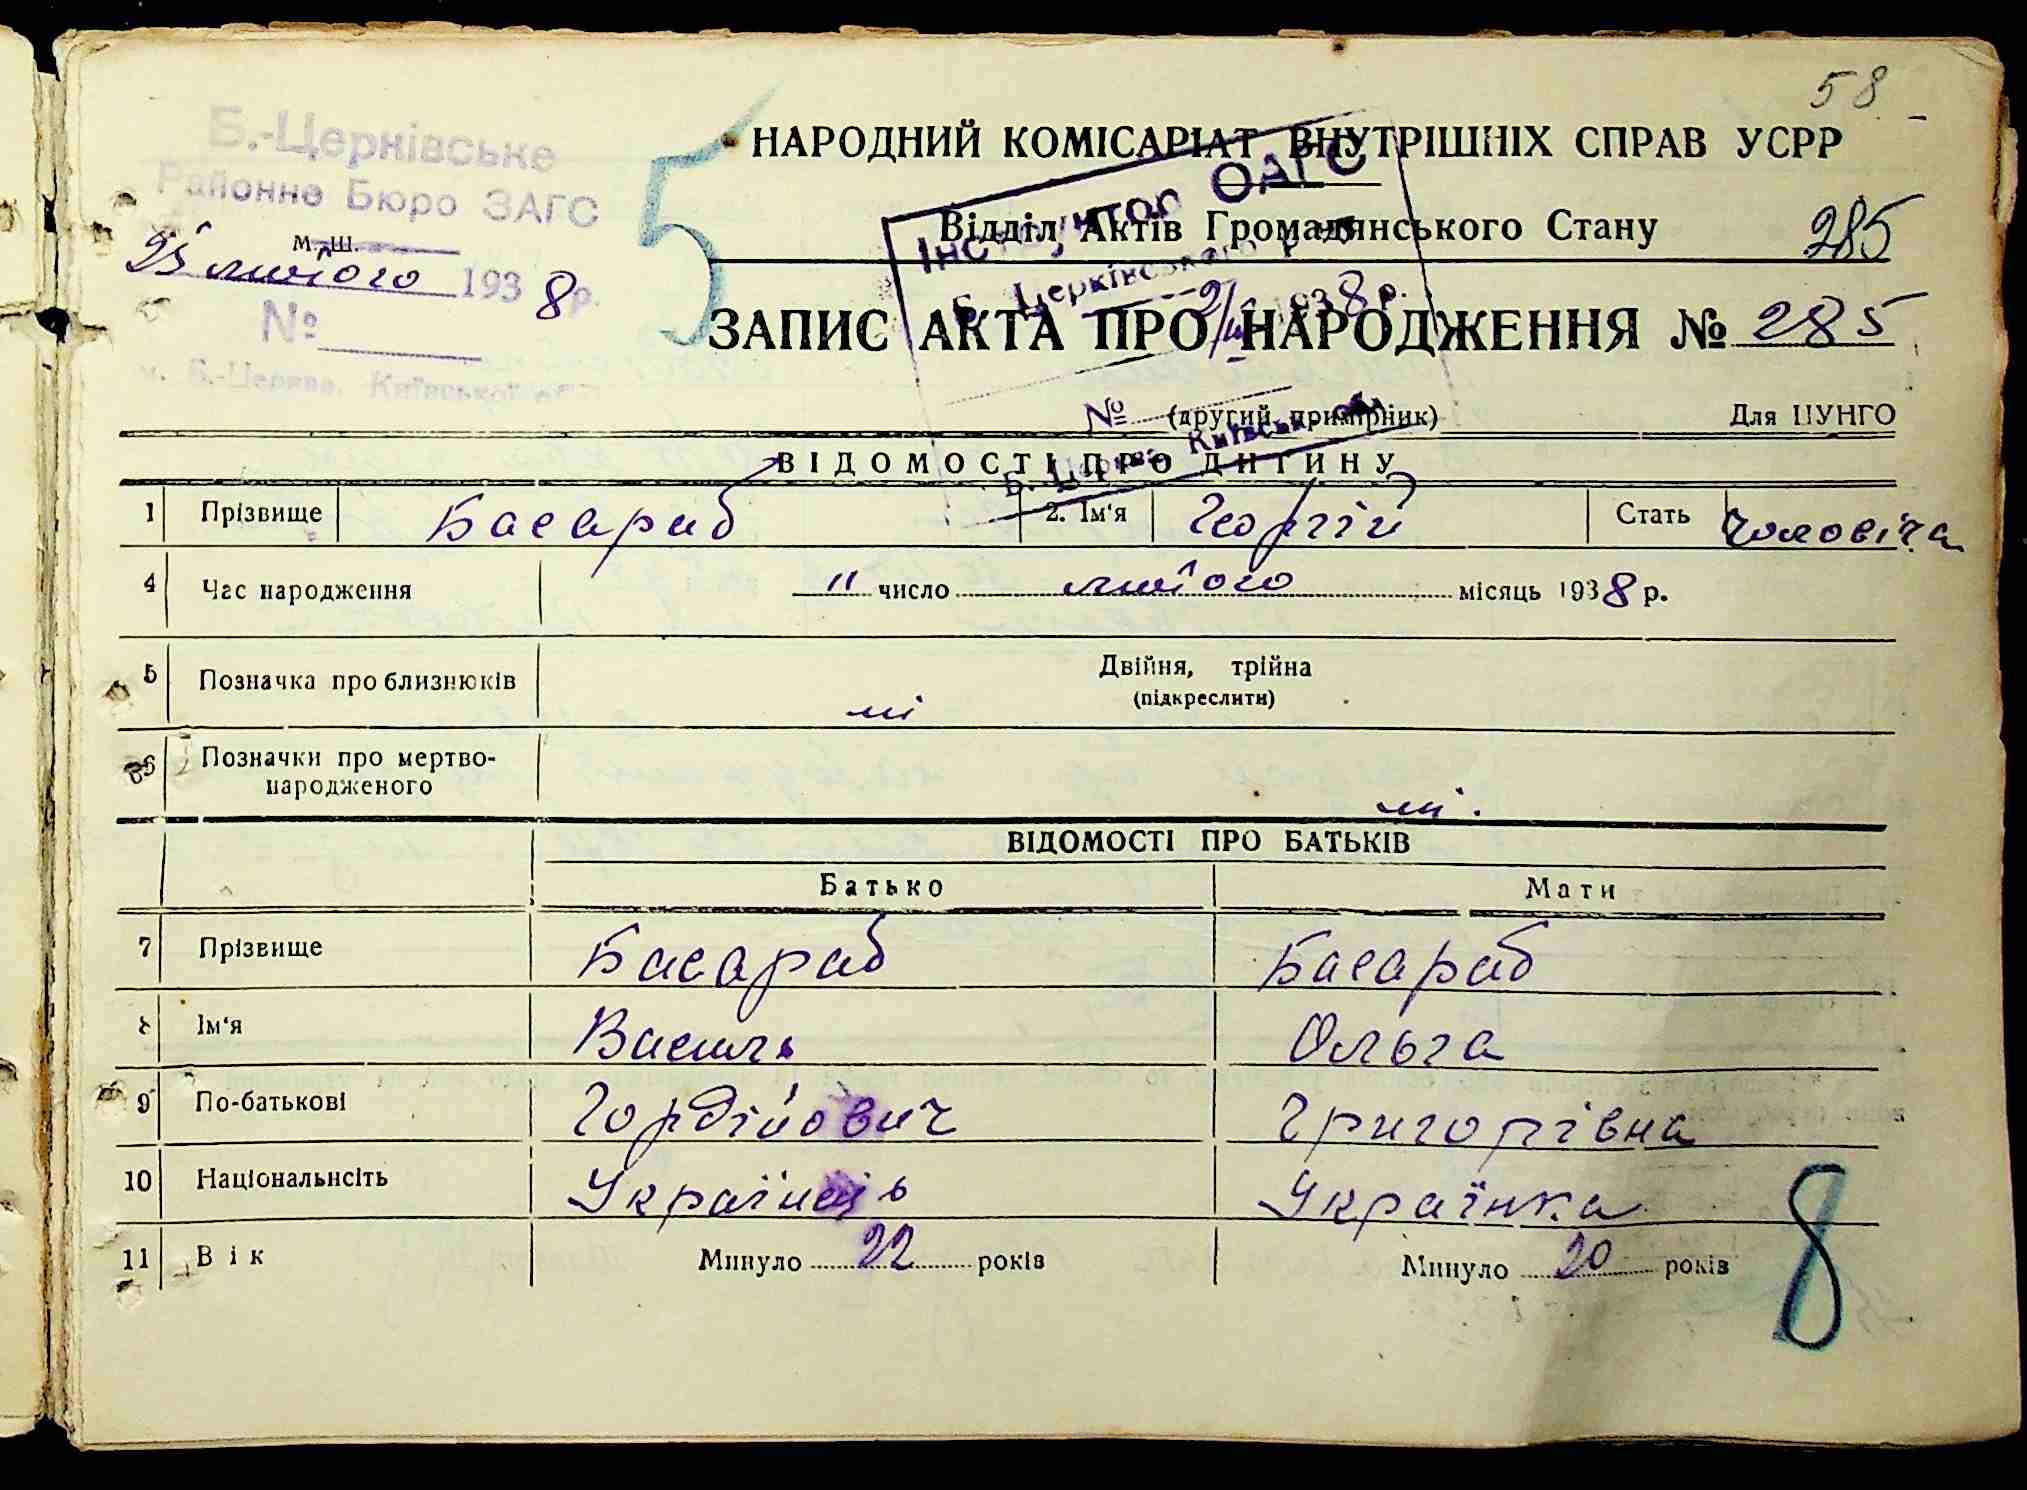 58
Б.-Церківське
Районне Бюро ЗАГС
м. ш.
25 лютого 1938 р.
№
м. Б.-Церква, Київської обл.
5
НАРОДНИЙ КОМІСАРІАТ ВНУТРІШНІХ СПРАВ УСРР
Відділ Актів Громадянського Стану 285
Інструктор ОАГС
Б. Церківського
1938 р.
№
Б. Церква Київськ. обл.
ЗАПИС АКТА ПРО НАРОДЖЕННЯ № 285
(другий примірник) Для ЦУНГО
ВІДОМОСТІ ПРО ДИТИНУ
1 Прізвище Басараб 2. Ім'я Георгій Стать чоловіча
4 Час народження 11 число лютого місяць 1938 р.
5 Позначка про близнюків Двійня, трійна
(підкреслити)
ні
6 Позначки про мертво-
народженого
ні.
ВІДОМОСТІ ПРО БАТЬКІВ
Батько Мати
7 Прізвище Басараб Басараб
8 Ім'я Василь Ольга
9 По-батькові Гордійович Григорівна
10 Національнсіть Українець Українка
11 Вік Минуло 22 років Минуло 20 років
8